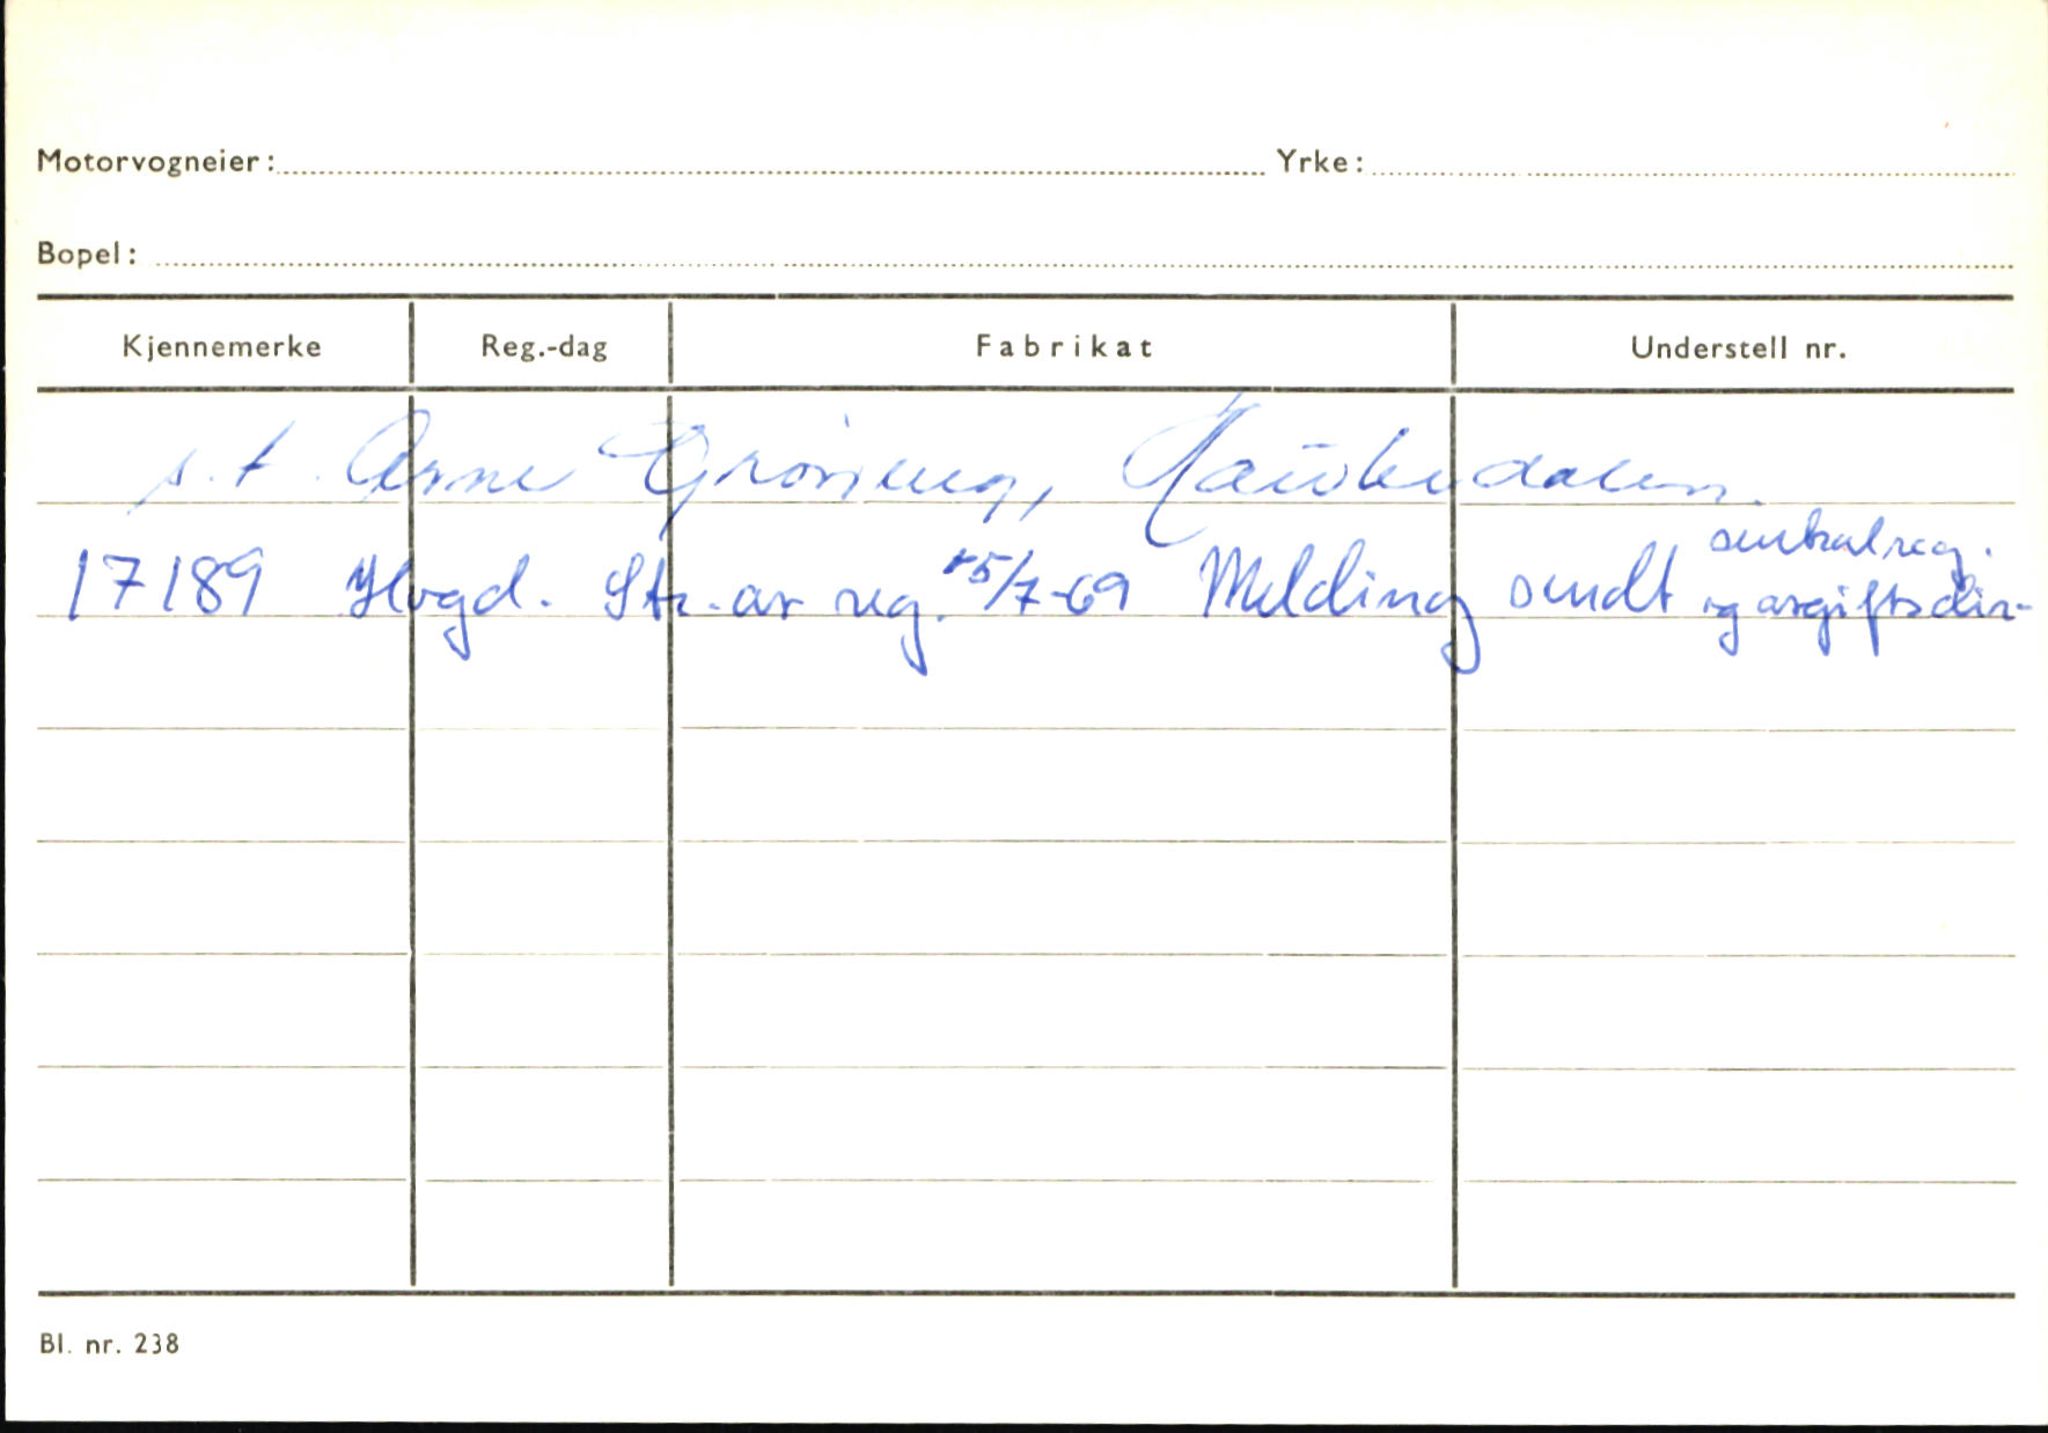 Motorvogneier: Yrke:
Bopel:
Kjennemerke Reg.-dag Fabrikat Understell nr.
s.t. Arne Grøning, Haukedalen.
17189 Hvgd. Str. av reg. 15/7-69 Melding sendt sentralreg.
og avgiftsdir-
Bl. nr. 238